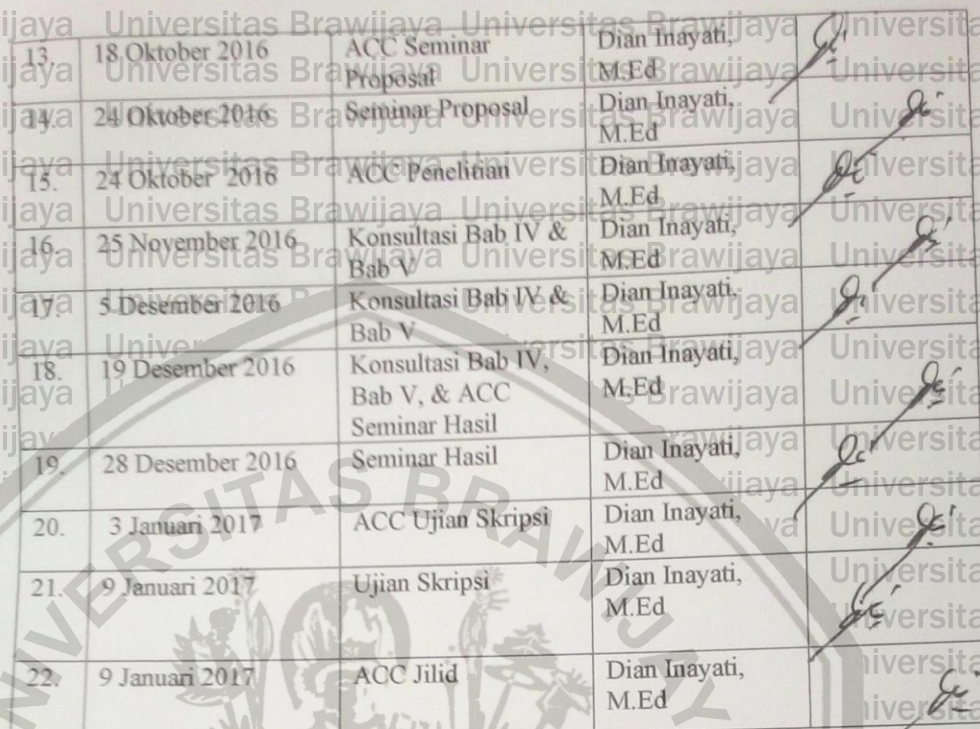 13. 18 Oktober 2016 ACC Seminar Dian Inayati,
Proposal M.Ed
14. 24 Oktober 2016 Seminar Proposal Dian Inayati,
M.Ed
15. 24 Oktober 2016 ACC Penelitian Dian Inayati,
M.Ed
16. 25 November 2016 Konsultasi Bab IV & Dian Inayati,
Bab V M.Ed
17. 5 Desember 2016 Konsultasi Bab IV & Dian Inayati,
Bab V M.Ed
18. 19 Desember 2016 Konsultasi Bab IV, Dian Inayati,
Bab V, & ACC M.Ed
Seminar Hasil
19. 28 Desember 2016 Seminar Hasil Dian Inayati,
M.Ed
20. 3 Januari 2017 ACC Ujian Skripsi Dian Inayati,
M.Ed
21. 9 Januari 2017 Ujian Skripsi Dian Inayati,
M.Ed
22. 9 Januari 2017 ACC Jilid Dian Inayati,
M.Ed